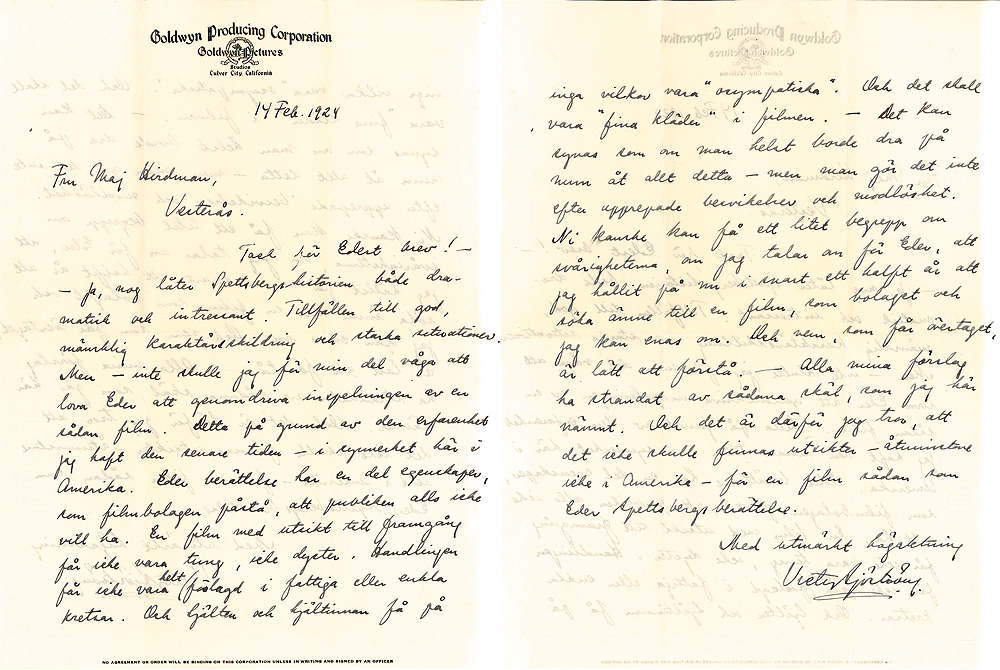 Goldwyn Producing Corporation
Goldwyn Pictures
Studios
Culver City, California
14 Feb. 1924
Fru Maj Hirdman,
Vesterås.
Tack för Edert brev! —
— Ja, nog låter Spettsbergshistorien både dra-
matisk och intressant. Tillfällen till god,
mänsklig karaktärsskildring och starka situationer.
Men — inte skulle jag för min del våga att
lova Eder att genomdriva inspelningen av en
sådan film. Detta på grund av den erfarenhet
jag haft den senare tiden — i synnerhet här i
Amerika. Eder berättelse har en del egenskaper,
som filmbolagen påstå, att publiken alls icke
vill ha. En film med utsikt till framgång
får icke vara tung, icke dyster. Handlingen
får icke vara helt förlagd i fattiga eller enkla
kretsar. Och hjälten och hjältinnan få på
NO AGREEMENT OR ORDER WILL BE BINDING ON THIS CORPORATION UNLESS IN WRITING AND SIGNED BY AN OFFICER
inga vilkor vara "osympatiska". Och det skall
vara "fina kläder" i filmen. — Det kan
synas som om man helst borde dra på
mun åt allt detta — men man gör det inte
efter upprepade besvikelser och modlöshet.
Ni kanske kan få ett litet begrepp om
svårigheterna, om jag talar om för Eder, att
jag hållit på nu i snart ett halft år att
söka ämne till en film, som bolaget och
jag kan enas om. Och vem, som får övertaget,
är lätt att förstå. — Alla mina förslag
ha strandat av sådana skäl, som jag här
nämnt. Och det är därför jag tror, att
det icke skulle finnas utsikter — åtminstone
icke i Amerika — för en film sådan som
Eder Spettsbergsberättelse.
Med utmärkt högaktning
Victor Sjöström.